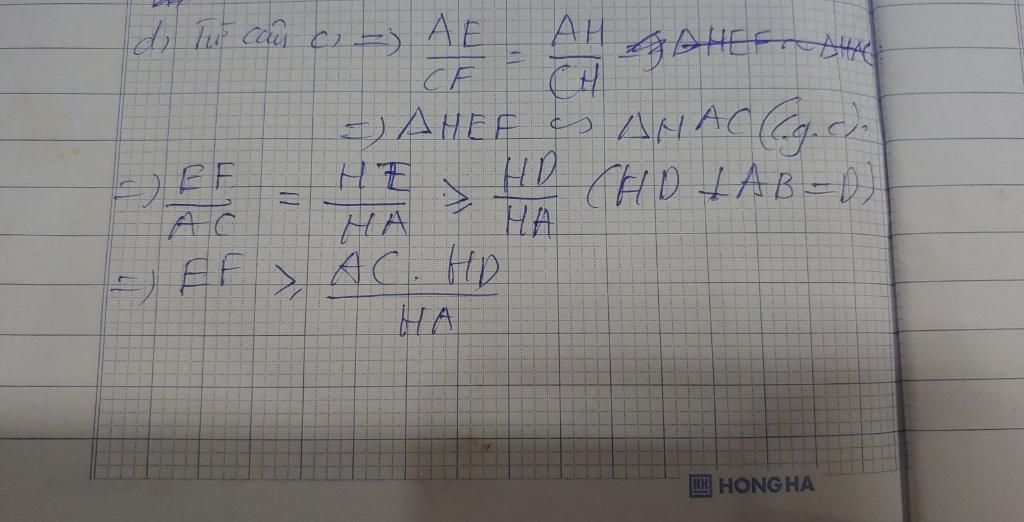 d) Từ câu c) => AE/CF = AH/CH
=> ΔHEF ∽ ΔHAC (c.g.c).
=> EF/AC = HE/HA ⩾ HD/HA (HD ⊥ AB = D)
=> EF ⩾ AC . HD / HA
HONG HA